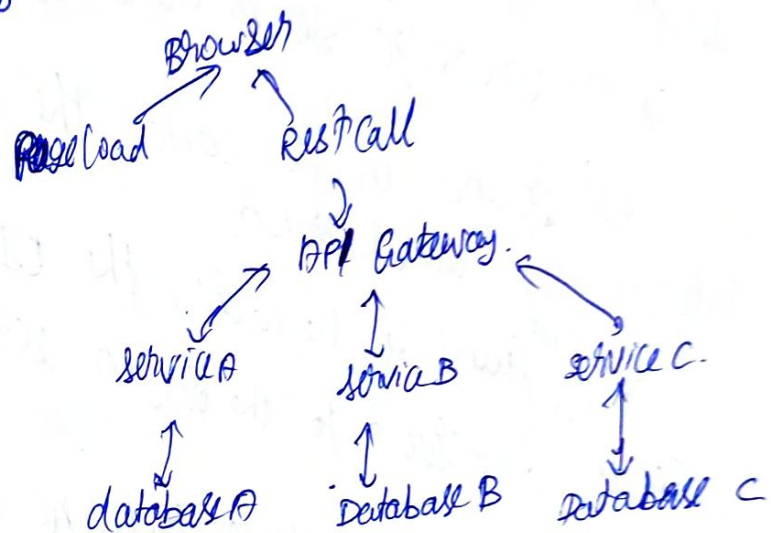 Browser
Page Load Rest Call
API Gateway.
service A service B service C.
database A Database B Database C